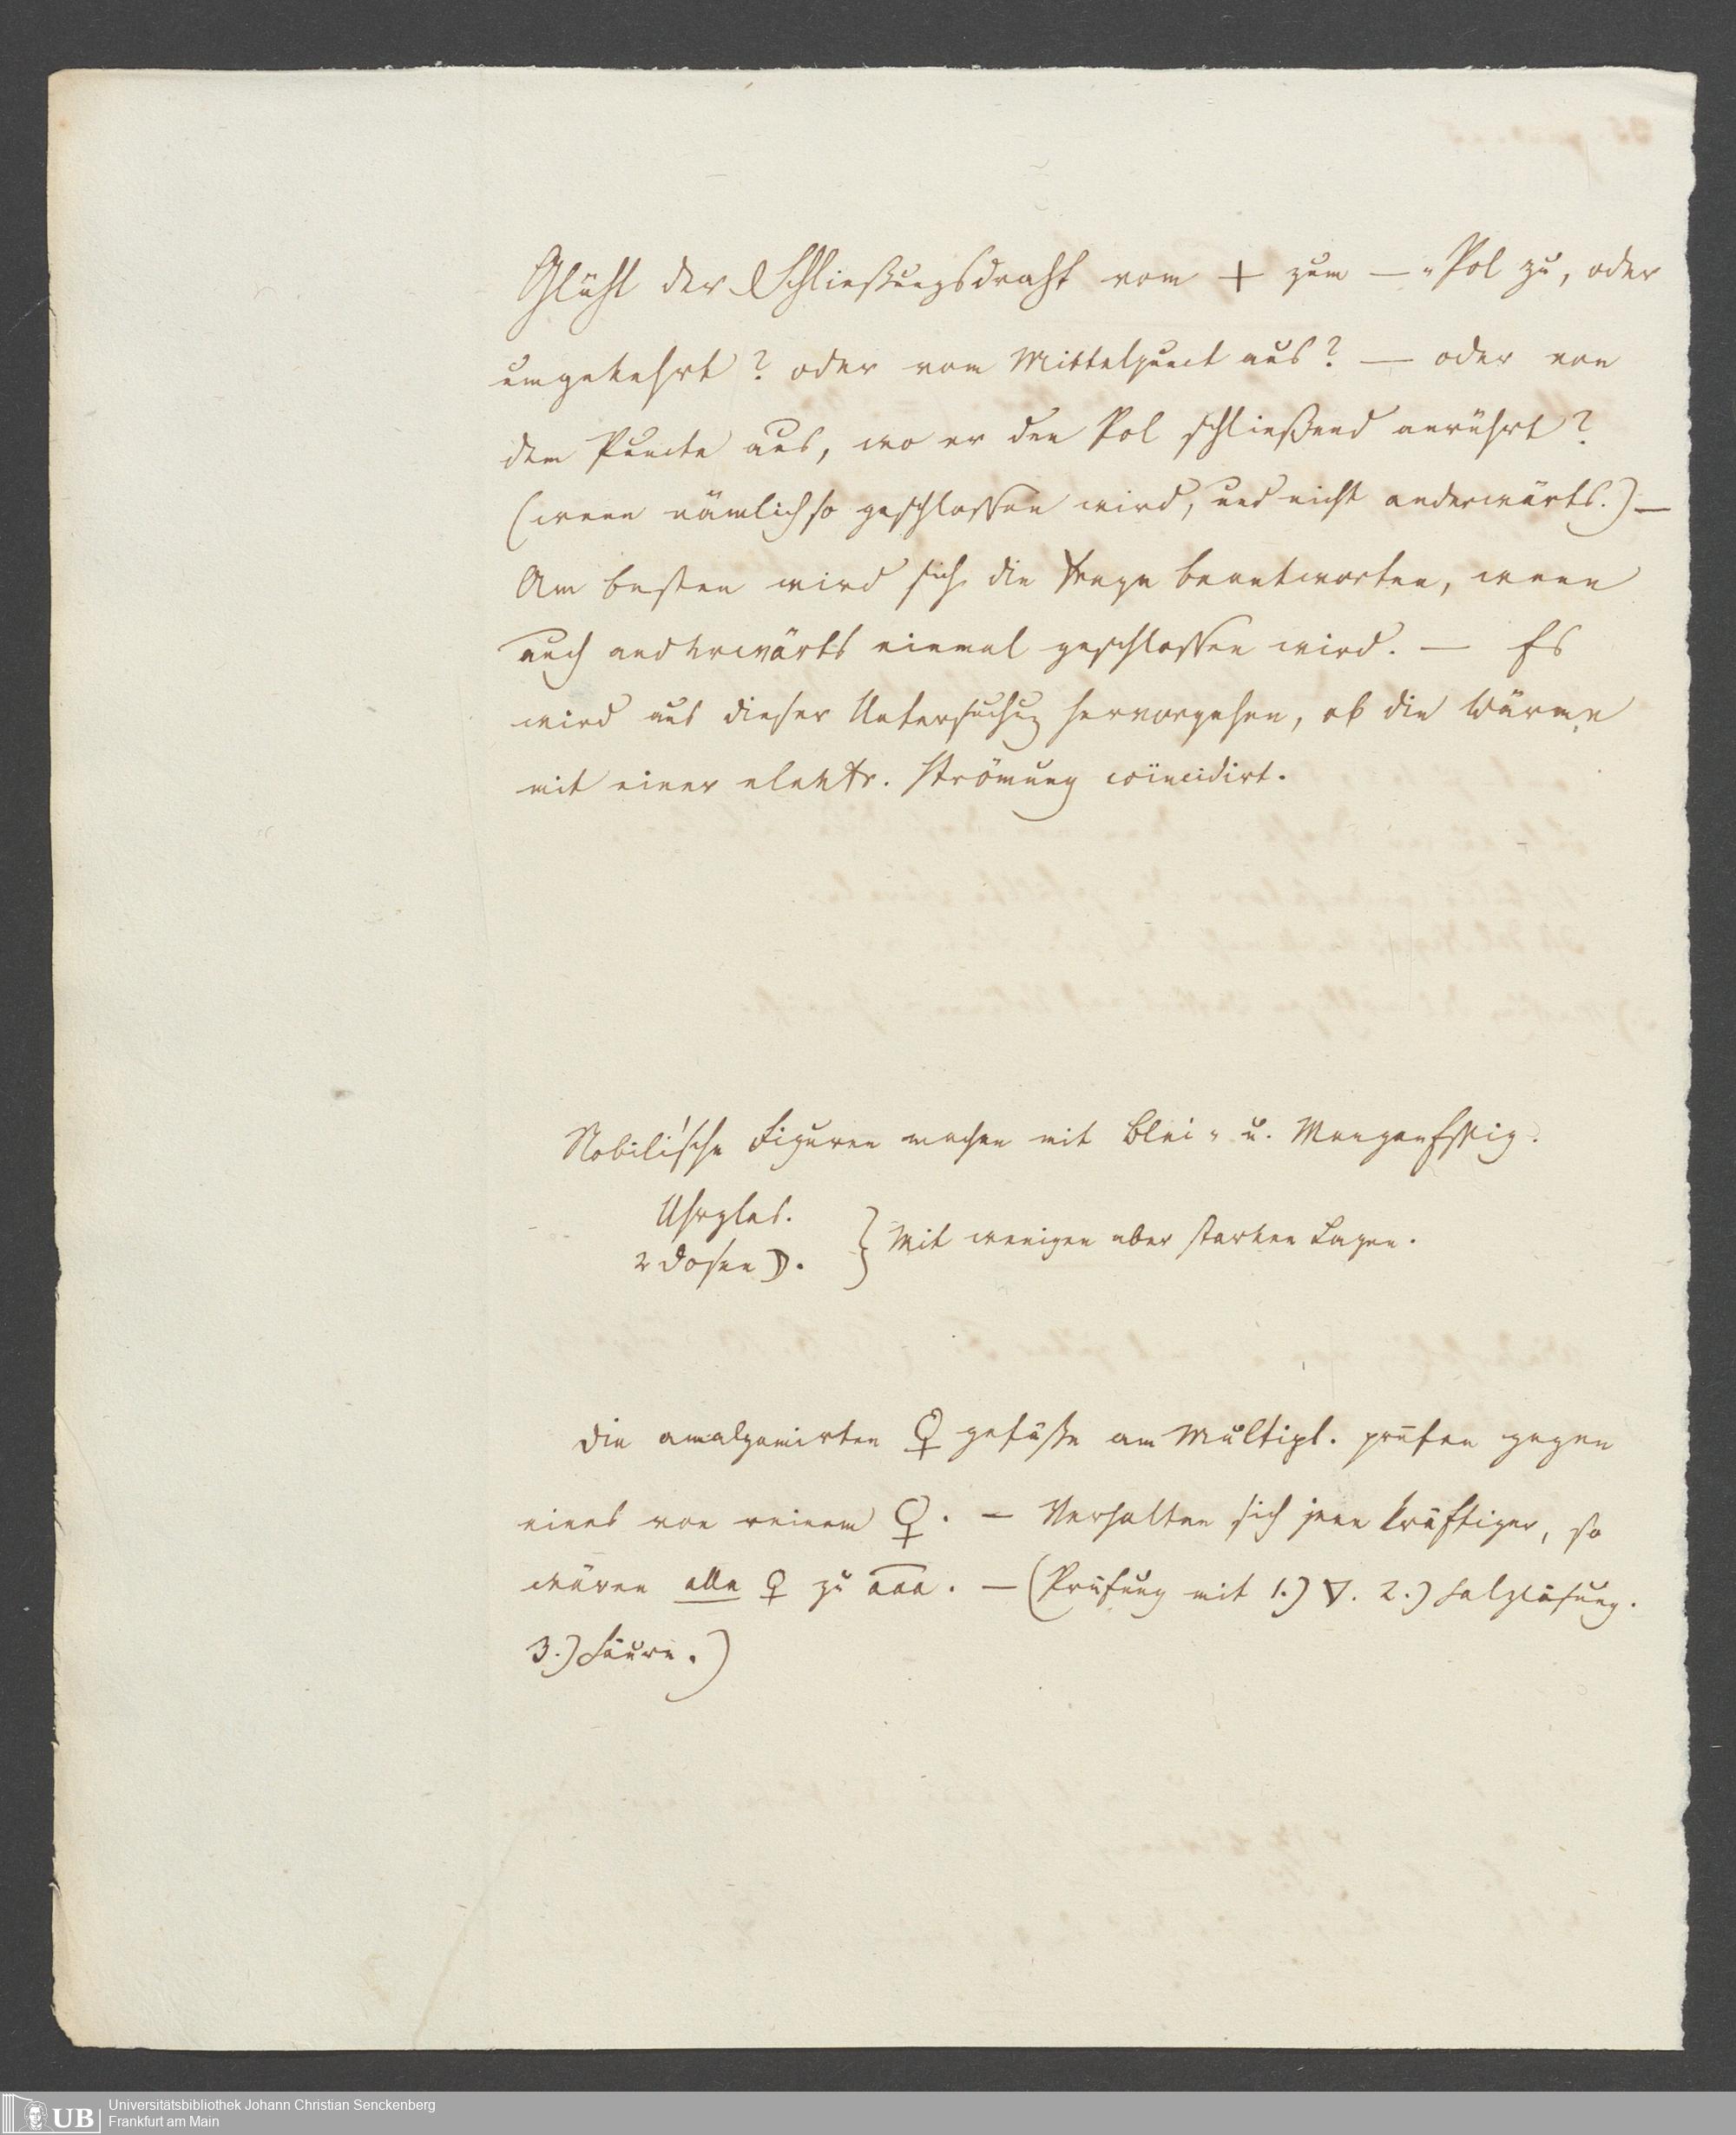 Glüht der Schließungsdraht vom + zum — -Pol zu, oder
umgekehrt? oder vom Mittelpunct aus? — oder von
dem Puncte aus, wo er den Pol schließend anrührt?
(wenn nämlich so geschlossen wird, und nicht anderwärts.) —
Am besten wird sich die Frage beantworten, wenn
auch anderwärts einmal geschlossen wird. — Es
wird aus dieser Untersuchung hervorgehen, ob die Wärme
mit einer elektr. Strömung coïncidirt.
Nobili'sche Figuren machen mit Blei- u. ManganEssig.
Uhrglas.
2 Dosen ☽. } Mit wenigen aber starken Lagen.
Die amalgamirten ♀ gefäße am Multipl. prüfen gegen
eines von reinem ♀. — Verhalten sich jene kräftiger, so
wären alle ♀ zu aaa. — (Prüfung mit 1.) ▽. 2.) Salzlösung.
3.) Säure.)
UB Universitätsbibliothek Johann Christian Senckenberg
Frankfurt am Main